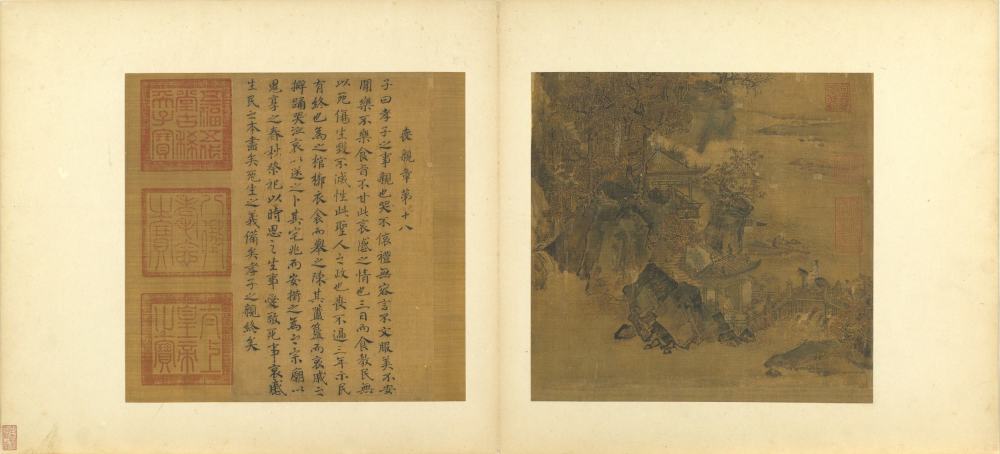 喪親章第十八
子曰孝子之事親也哭不偯禮無容言不文服美不安
聞樂不樂食旨不甘此哀慼之情也三日而食教民無
以死傷生毀不滅性此聖人之政也喪不過三年示民
有終也為之棺槨衣衾而舉之陳其簠簋而哀戚之
擗踊哭泣哀以送之卜其宅兆而安措之為之宗廟以
鬼享之春秋祭祀以時思之生事愛敬死事哀慼
生民之本盡矣死生之義備矣孝子之親終矣
五福五代堂古稀天子寶
八徵耄念之寶
太上皇帝之寶